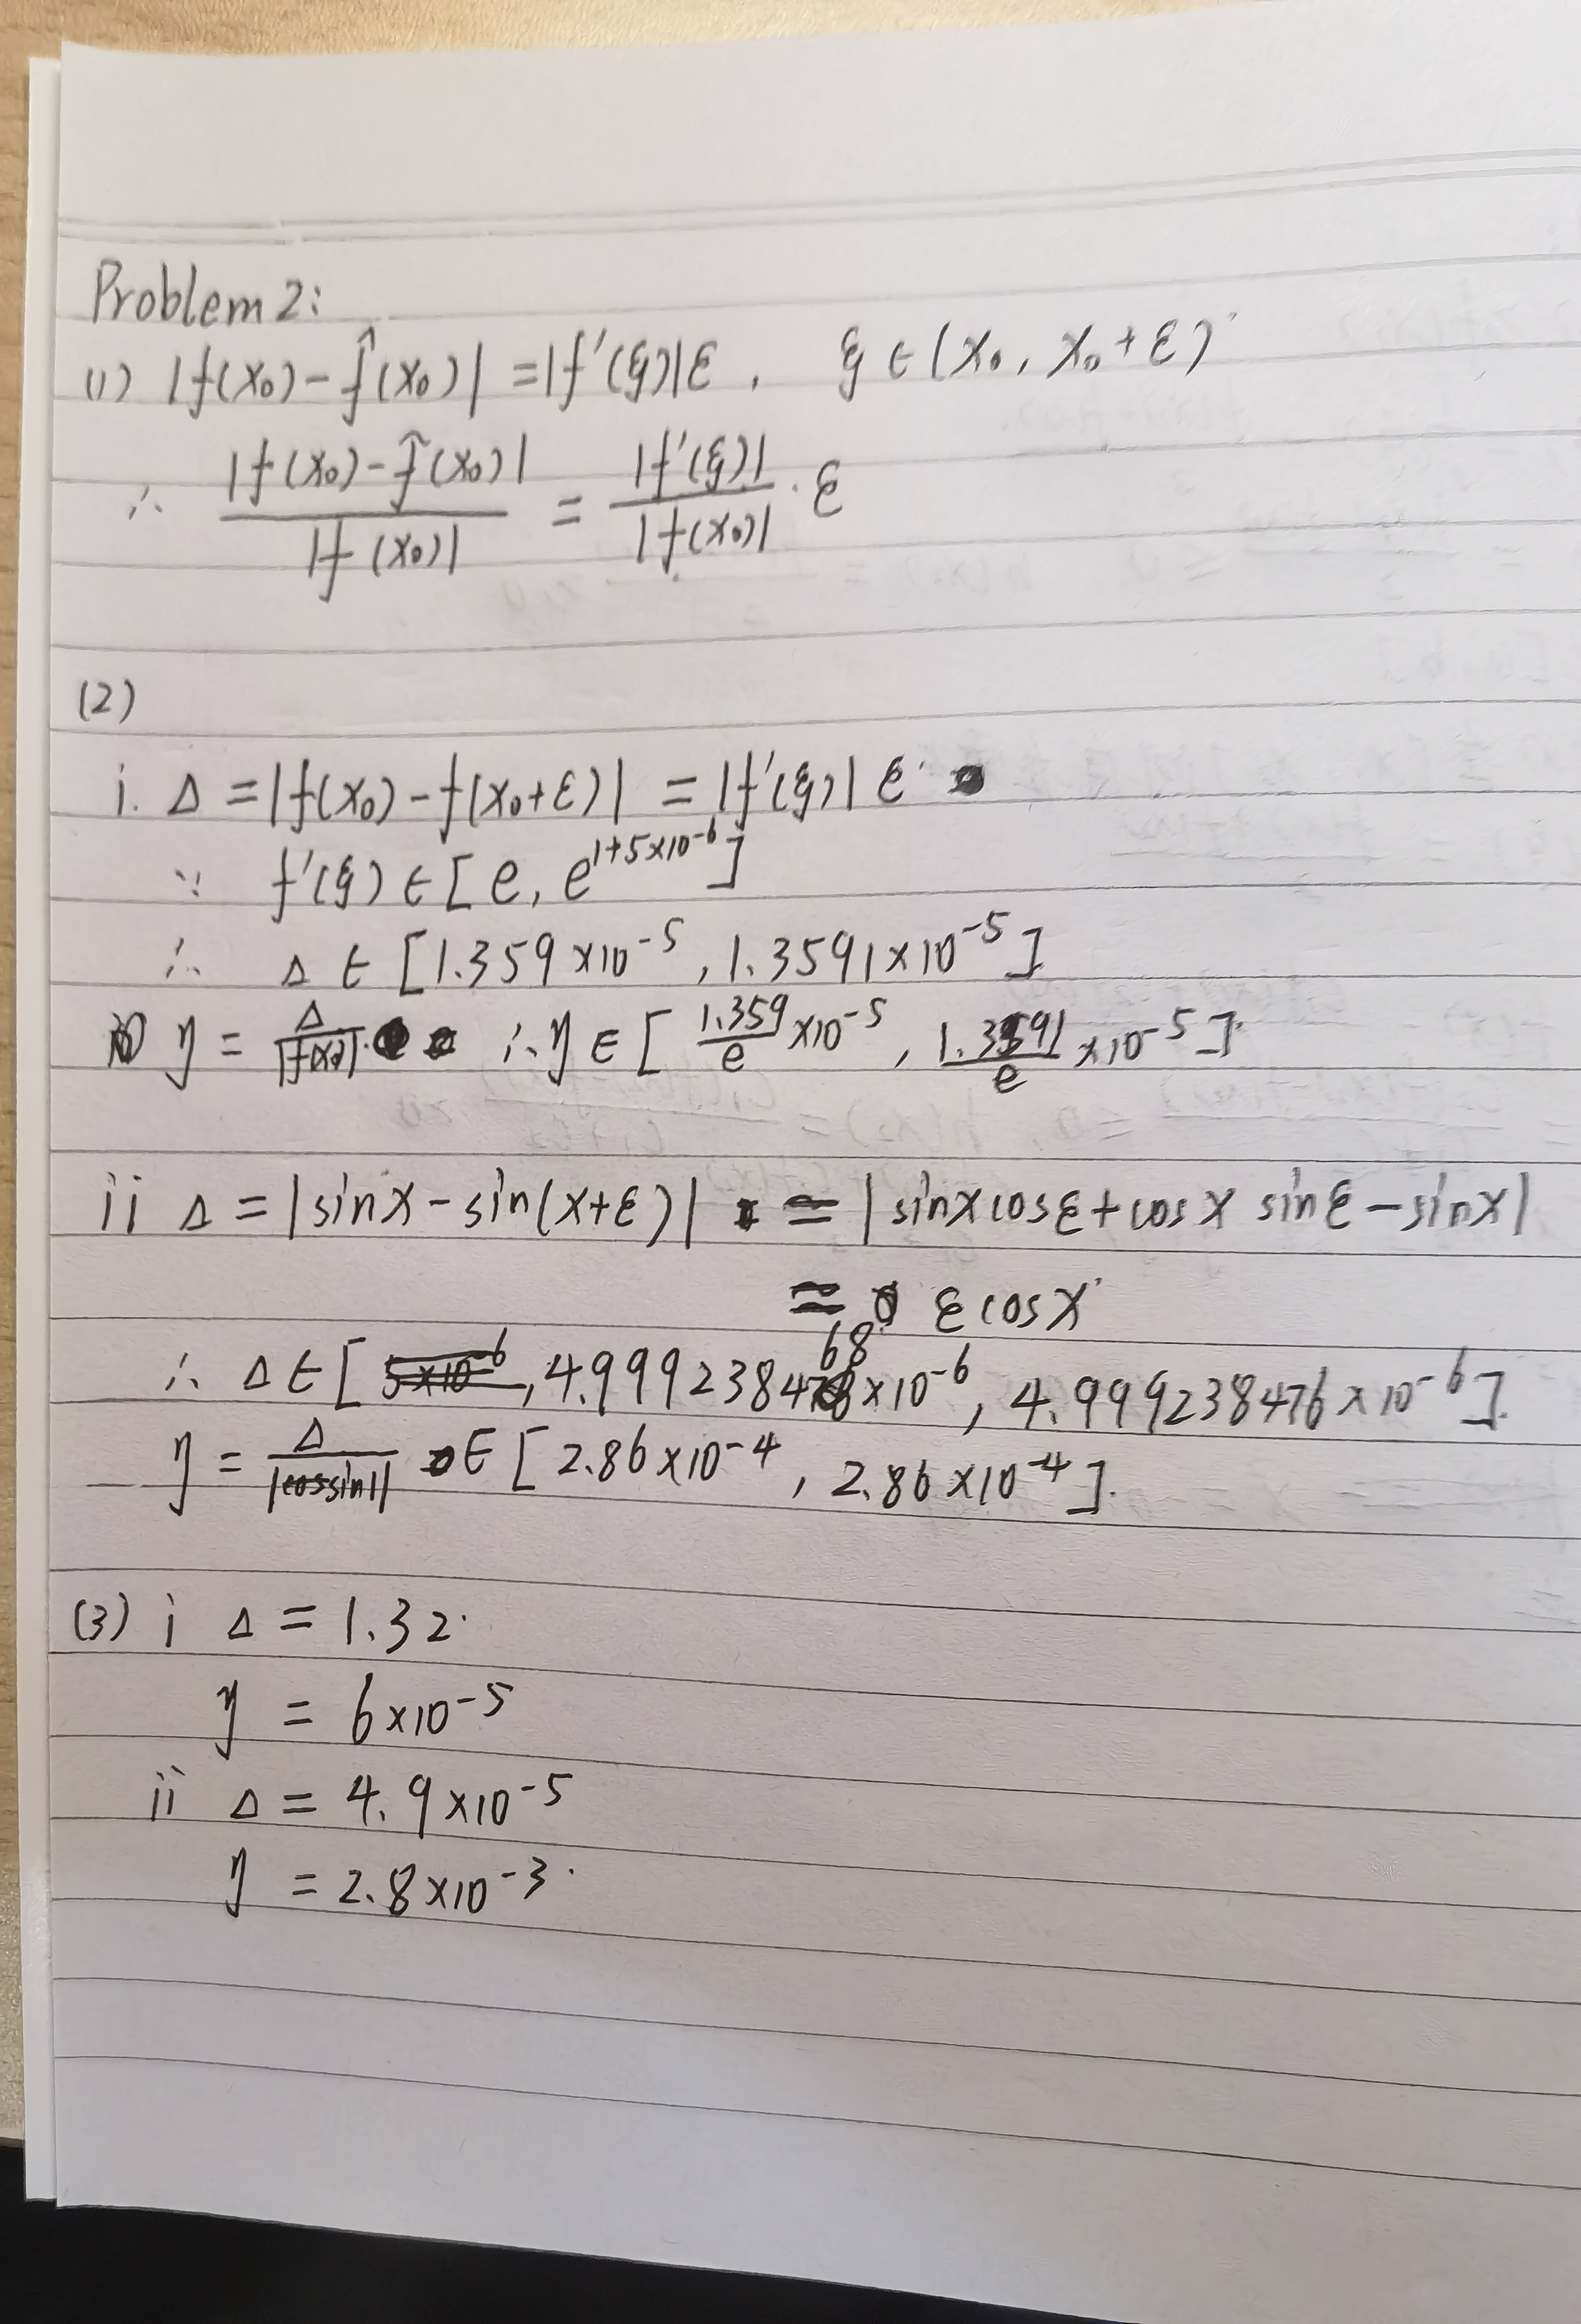 Problem 2:
(1) |f(x₀)-f̂(x₀)| = |f'(ξ)|ε, ξ ∈ (x₀, x₀+ε)
∴ |f(x₀)-f̂(x₀)| / |f(x₀)| = |f'(ξ)| / |f(x₀)| · ε
(2)
i. Δ = |f(x₀)-f(x₀+ε)| = |f'(ξ)| ε
∵ f'(ξ) ∈ [e, e^(1+5×10⁻⁶)]
∴ Δ ∈ [1.359×10⁻⁵, 1.3591×10⁻⁵]
η = Δ / |f(x₀)| ∴ η ∈ [1.359/e ×10⁻⁵, 1.3591/e ×10⁻⁵].
ii Δ = |sinx - sin(x+ε)| = |sinx cosε + cosx sinε - sinx|
≈ ε cosx
∴ Δ ∈ [4.99923847668×10⁻⁶, 4.999238476×10⁻⁶].
η = Δ / |sin1| ∈ [2.86×10⁻⁴, 2.86×10⁻⁴].
(3) i Δ = 1.32.
η = 6×10⁻⁵
ii Δ = 4.9×10⁻⁵
η = 2.8×10⁻³.